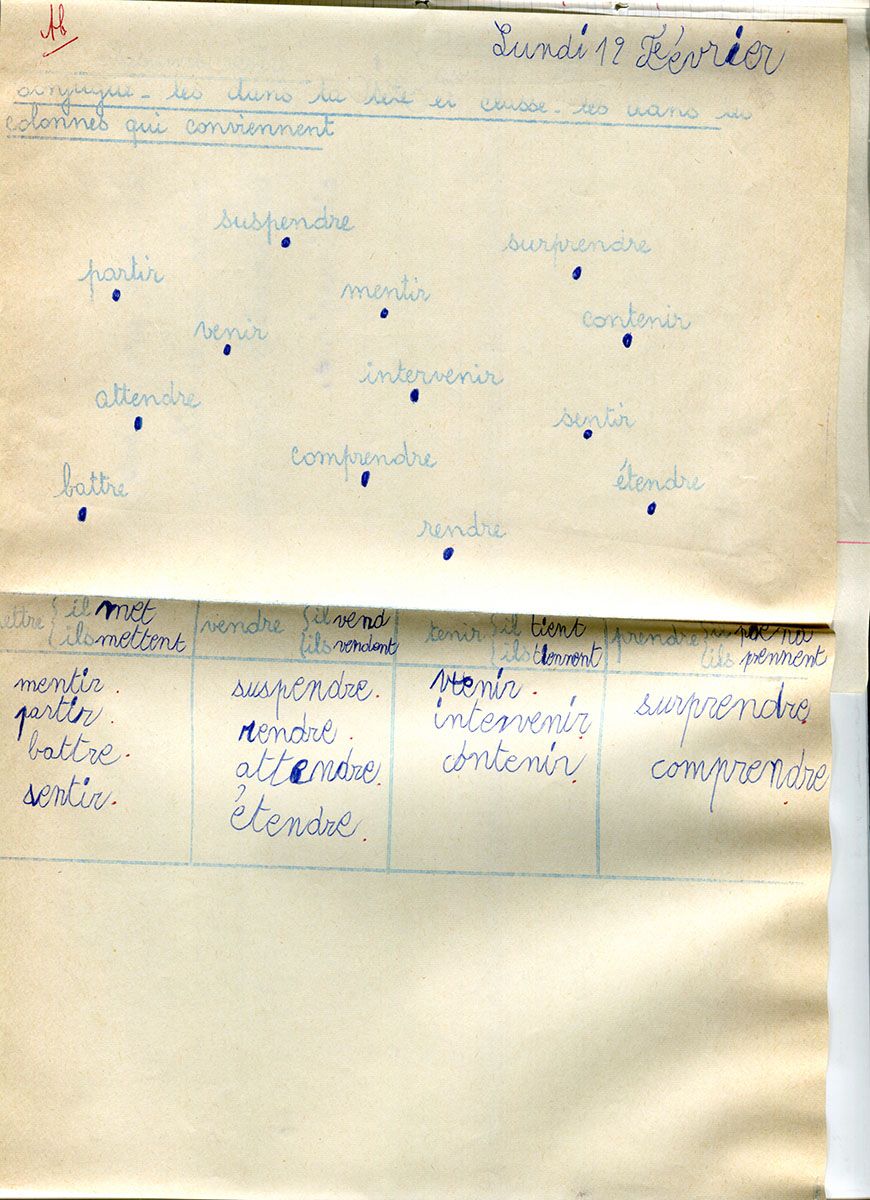 Ab
Lundi 12 Février
conjugue-les dans ta tête et classe-les dans les
colonnes qui conviennent
suspendre
surprendre
partir
mentir
contenir
venir
intervenir
attendre
sentir
comprendre
battre
étendre
rendre
ettre il met vendre il vend tenir il tient prendre
ils mettent ils vendent ils tiennent ils prennent
mentir. suspendre. venir. surprendre.
partir. rendre. intervenir comprendre
battre. attendre. contenir.
sentir. étendre.